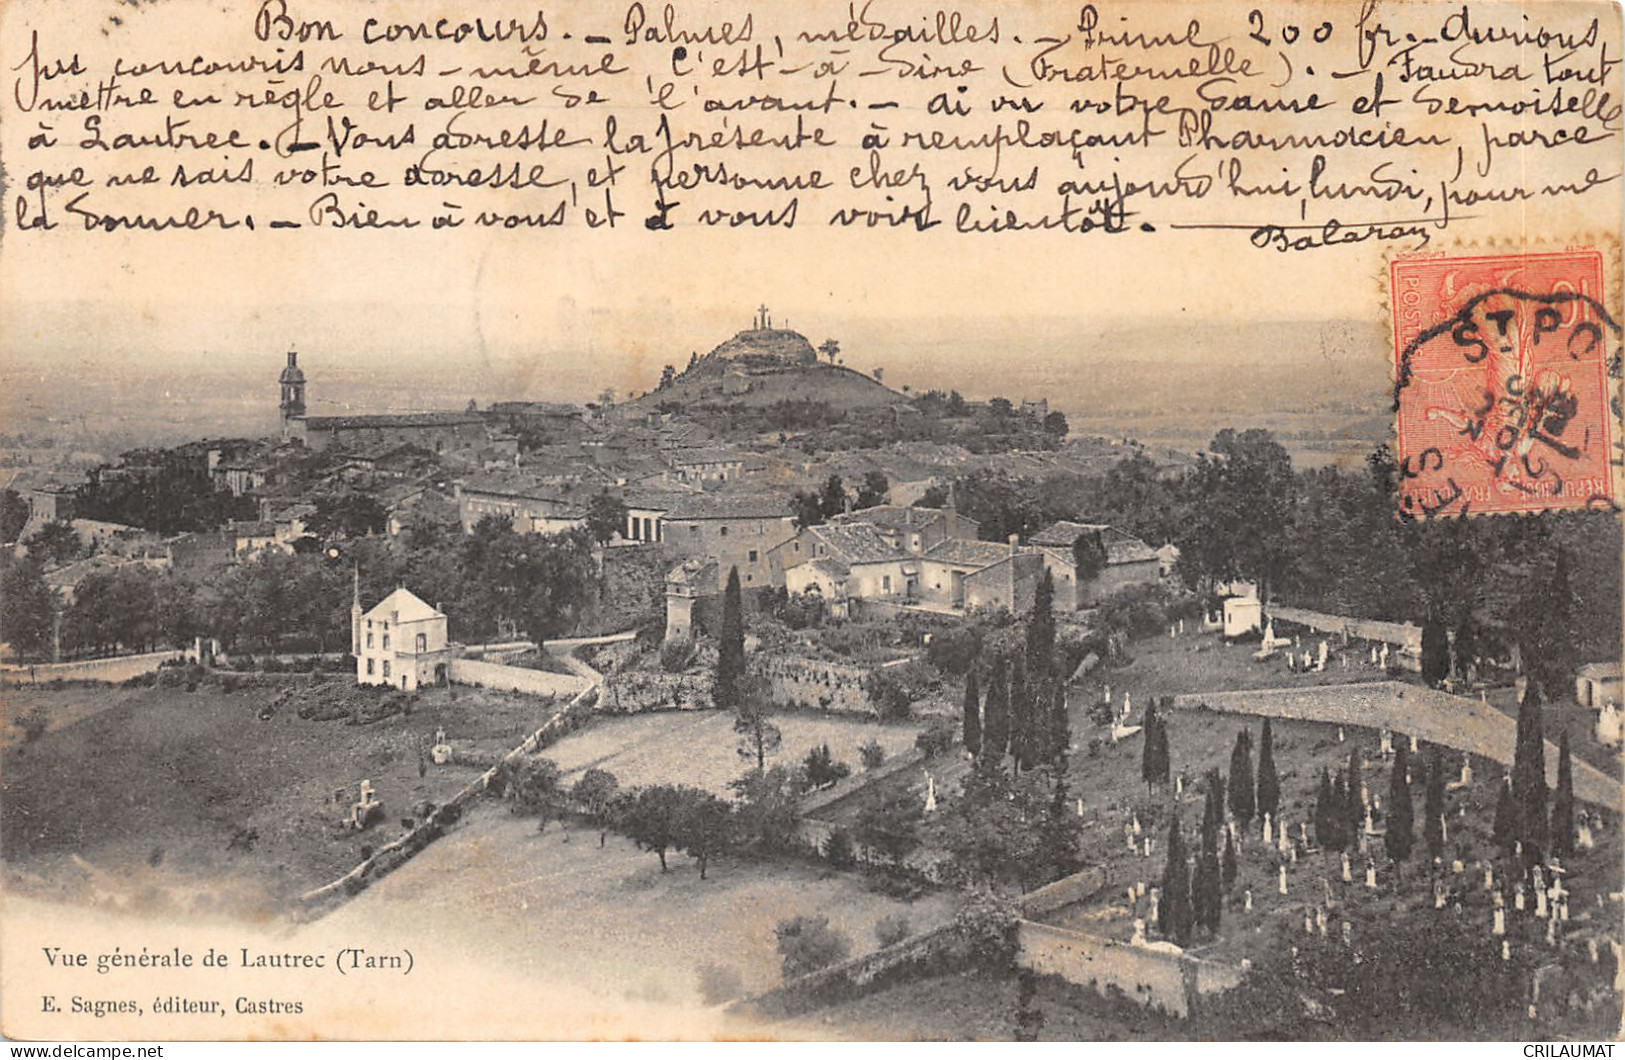 Bon concours. — Palmes, médailles. — Prime 200 fr. — Aurions,
pu concouris nous-même, c'est-à-dire (Fraternelle). — Faudra tout
mettre en règle et aller de l'avant. — ai vu votre dame et demoiselle
à Lautrec. — Vous adresse la présente à remplaçant Pharmacien, parce
que ne sais votre adresse, et personne chez vous aujourd'hui, lundi, pour me
la donner. — Bien à vous et à vous voir bientôt. —
Balaran
POSTES
RÉPUBLIQUE FRANÇAISE
ST PO
Vue générale de Lautrec (Tarn)
E. Sagnes, éditeur, Castres
CRILAUMAT